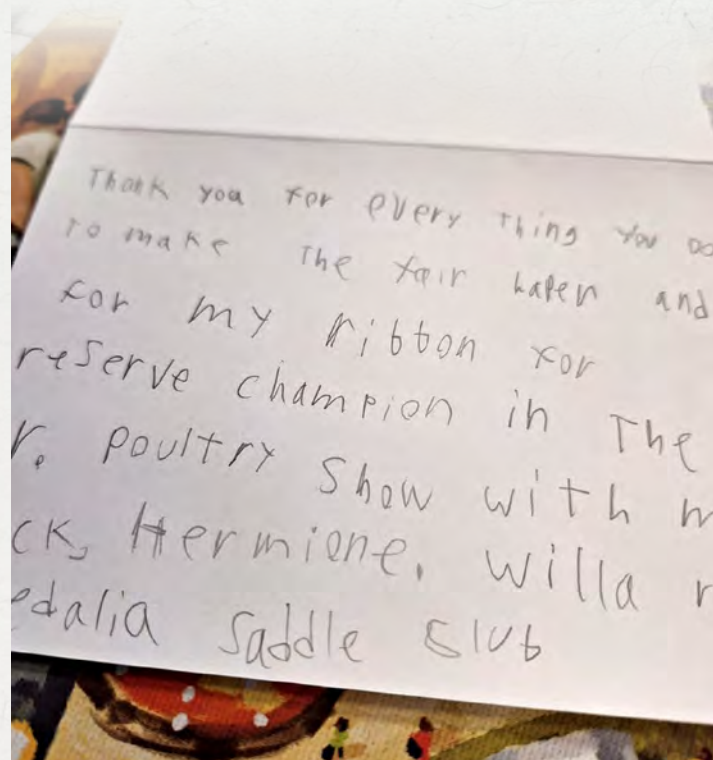 Thank you for every thing you do
to make the fair hapen and
for my ribbon for
reserve champion in The
r. poultry Show with m
ck, Hermione. Willa r
edalia Saddle Club